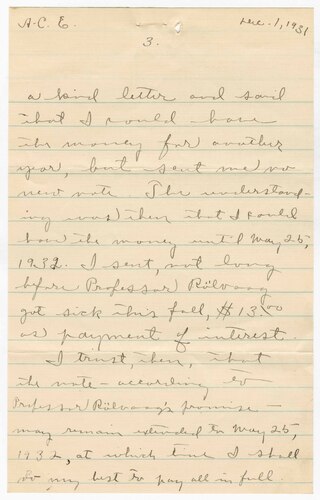 A.C.E. Dec. 1, 1931
3.
a kind letter and said
that I could have
the money for another
year, but sent me no
new note. The understand-
ing was then that I could
have the money until May 25,
1932. I sent, not long
before Professor Rölvaag
got sick this fall, $13.00
as payment of interest.
I trust, then, that
the note - according to
Professor Rölvaag's promise -
may remain extended to May 25,
1932, at which time I shall
do my best to pay all in full.